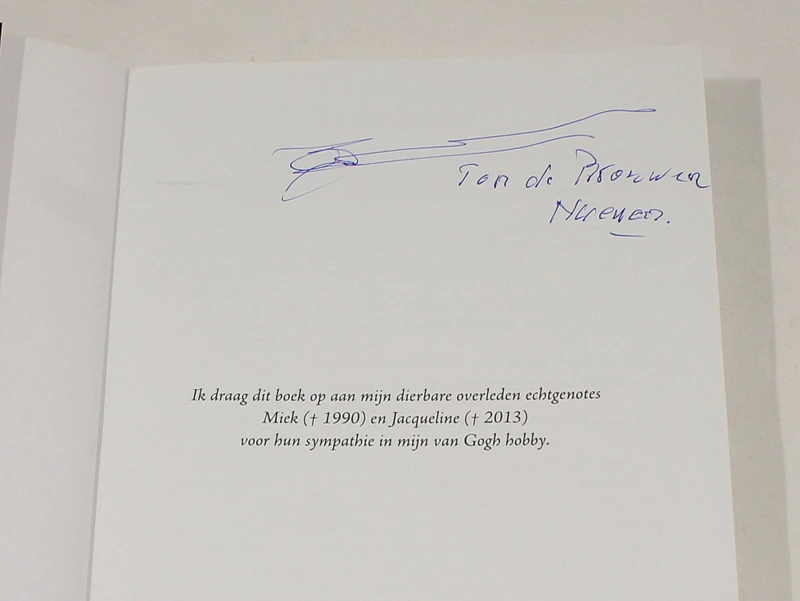 Ton de Brouwer
Nuenen.
Ik draag dit boek op aan mijn dierbare overleden echtgenotes
Miek († 1990) en Jacqueline († 2013)
voor hun sympathie in mijn van Gogh hobby.